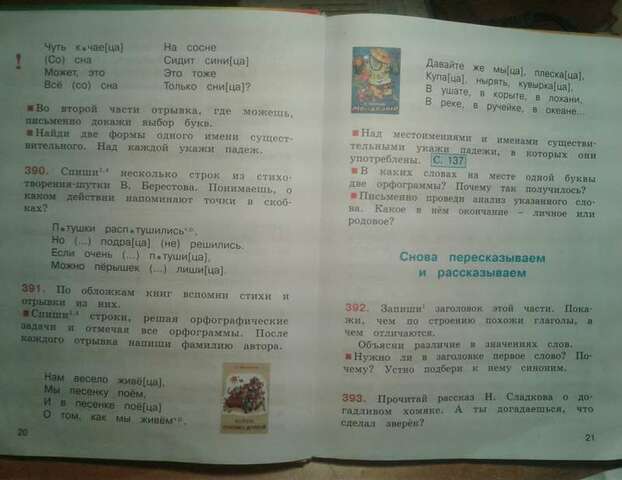 Чуть к•чае[ца]
(Со) сна
Может, это
Всё (со) сна
На сосне
Сидит сини[ца]
Это тоже
Только сни[ца]?
!
Во второй части отрывка, где можешь,
письменно докажи выбор букв.
Найди две формы одного имени сущест-
вительного. Над каждой укажи падеж.
390. Спиши несколько строк из стихо-
творения-шутки В. Берестова. Понимаешь, о
каком действии напоминают точки в скоб-
ках?
П•тушки расп•тушились
Но (...) подра[ца] (не) решились.
Если очень (...) п•туши[ца],
Можно пёрышек (...) лиши[ца].
391. По обложкам книг вспомни стихи и
отрывки из них.
Спиши строки, решая орфографические
задачи и отмечая все орфограммы. После
каждого отрывка напиши фамилию автора.
Нам весело живё[ца],
Мы песенку поём,
И в песенке поё[ца]
О том, как мы живём
20
Давайте же мы[ца], плеска[ца],
Купа[ца], нырять, кувырка[ца],
В ушате, в корыте, в лохани,
В реке, в ручейке, в океане...
Над местоимениями и именами существи-
тельными укажи падежи, в которых они
употреблены. С. 137
В каких словах на месте одной буквы
две орфограммы? Почему так получилось?
Письменно проведи анализ указанного сло-
ва. Какое в нём окончание – личное или
родовое?
Снова пересказываем
и рассказываем
392. Запиши заголовок этой части. Пока-
жи, чем по строению похожи глаголы, в
чем отличаются.
Объясни различие в значениях слов.
Нужно ли в заголовке первое слово? По-
чему? Устно подбери к нему синоним.
393. Прочитай рассказ Н. Сладкова о до-
гадливом хомяке. А ты догадаешься, что
сделал зверёк?
21